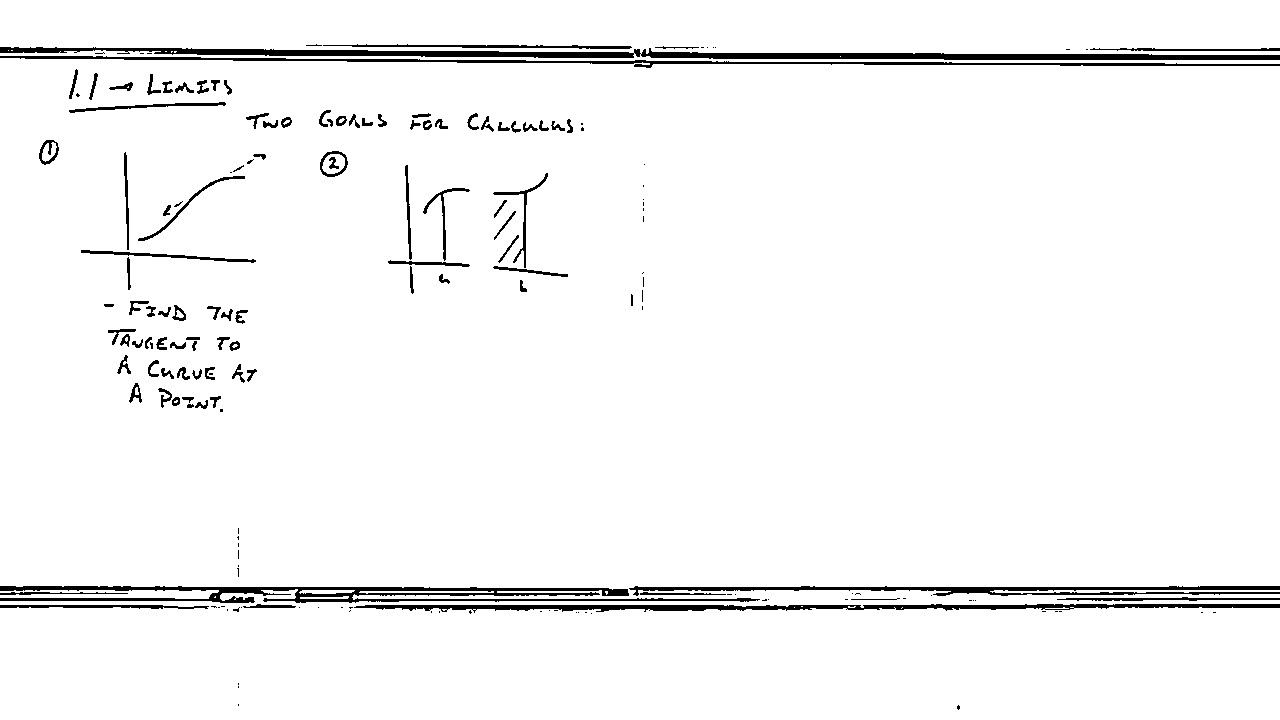 1.1 → LIMITS
TWO GOALS FOR CALCULUS:
①
②
a
b
- FIND THE
TANGENT TO
A CURVE AT
A POINT.